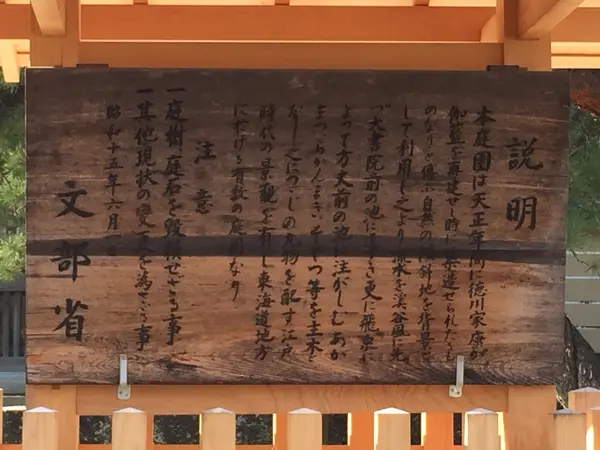 説明
本庭園は天正年間に徳川家康が
伽藍を再建せし時に築造せられたも
のなりと傳ふ自然の傾斜地を背景と
して利用し之より流水を渓谷風に先
づ大書院前の池に導き更に飛泉に
よつて方丈前の池に注がしむあか
まつくろまつ等を主木と
なし之につゝじの丸物を配す江戸
時代の景観を有し東海道地方
に於ける有数の庭園なり
注意
一庭樹庭石を毀損せざる事
一其他現状の変更を為さゞる事
昭和十五年六月
文部省